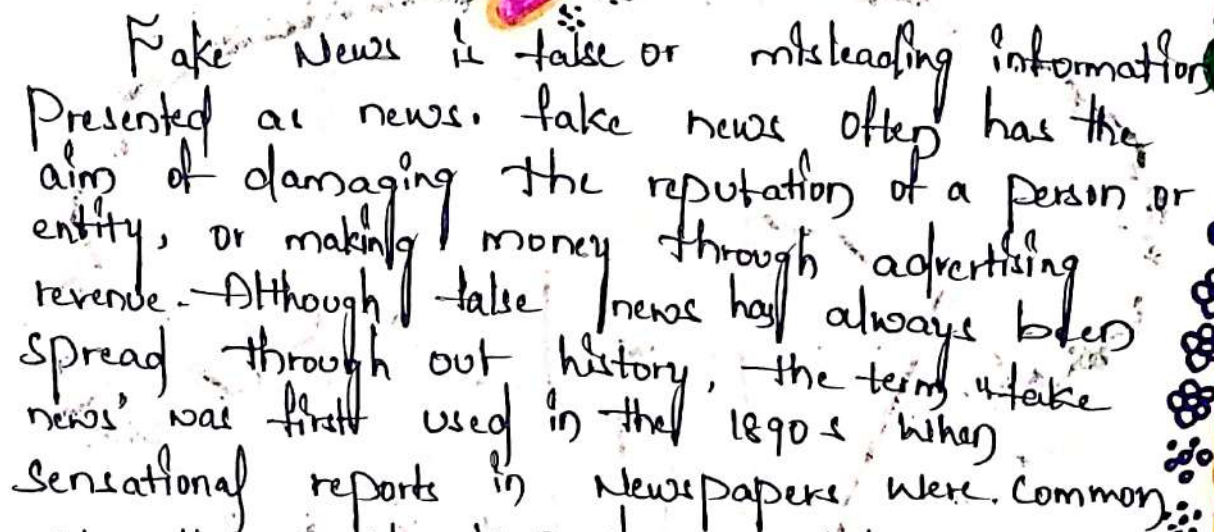 Fake News is false or misleading information
Presented as news. fake news often has the
aim of damaging the reputation of a person or
entity, or making money through advertising
revenue. Although false news has always been
spread through out history, the term "fake
news' was first used in the 1890s when
sensational reports in Newspapers were common